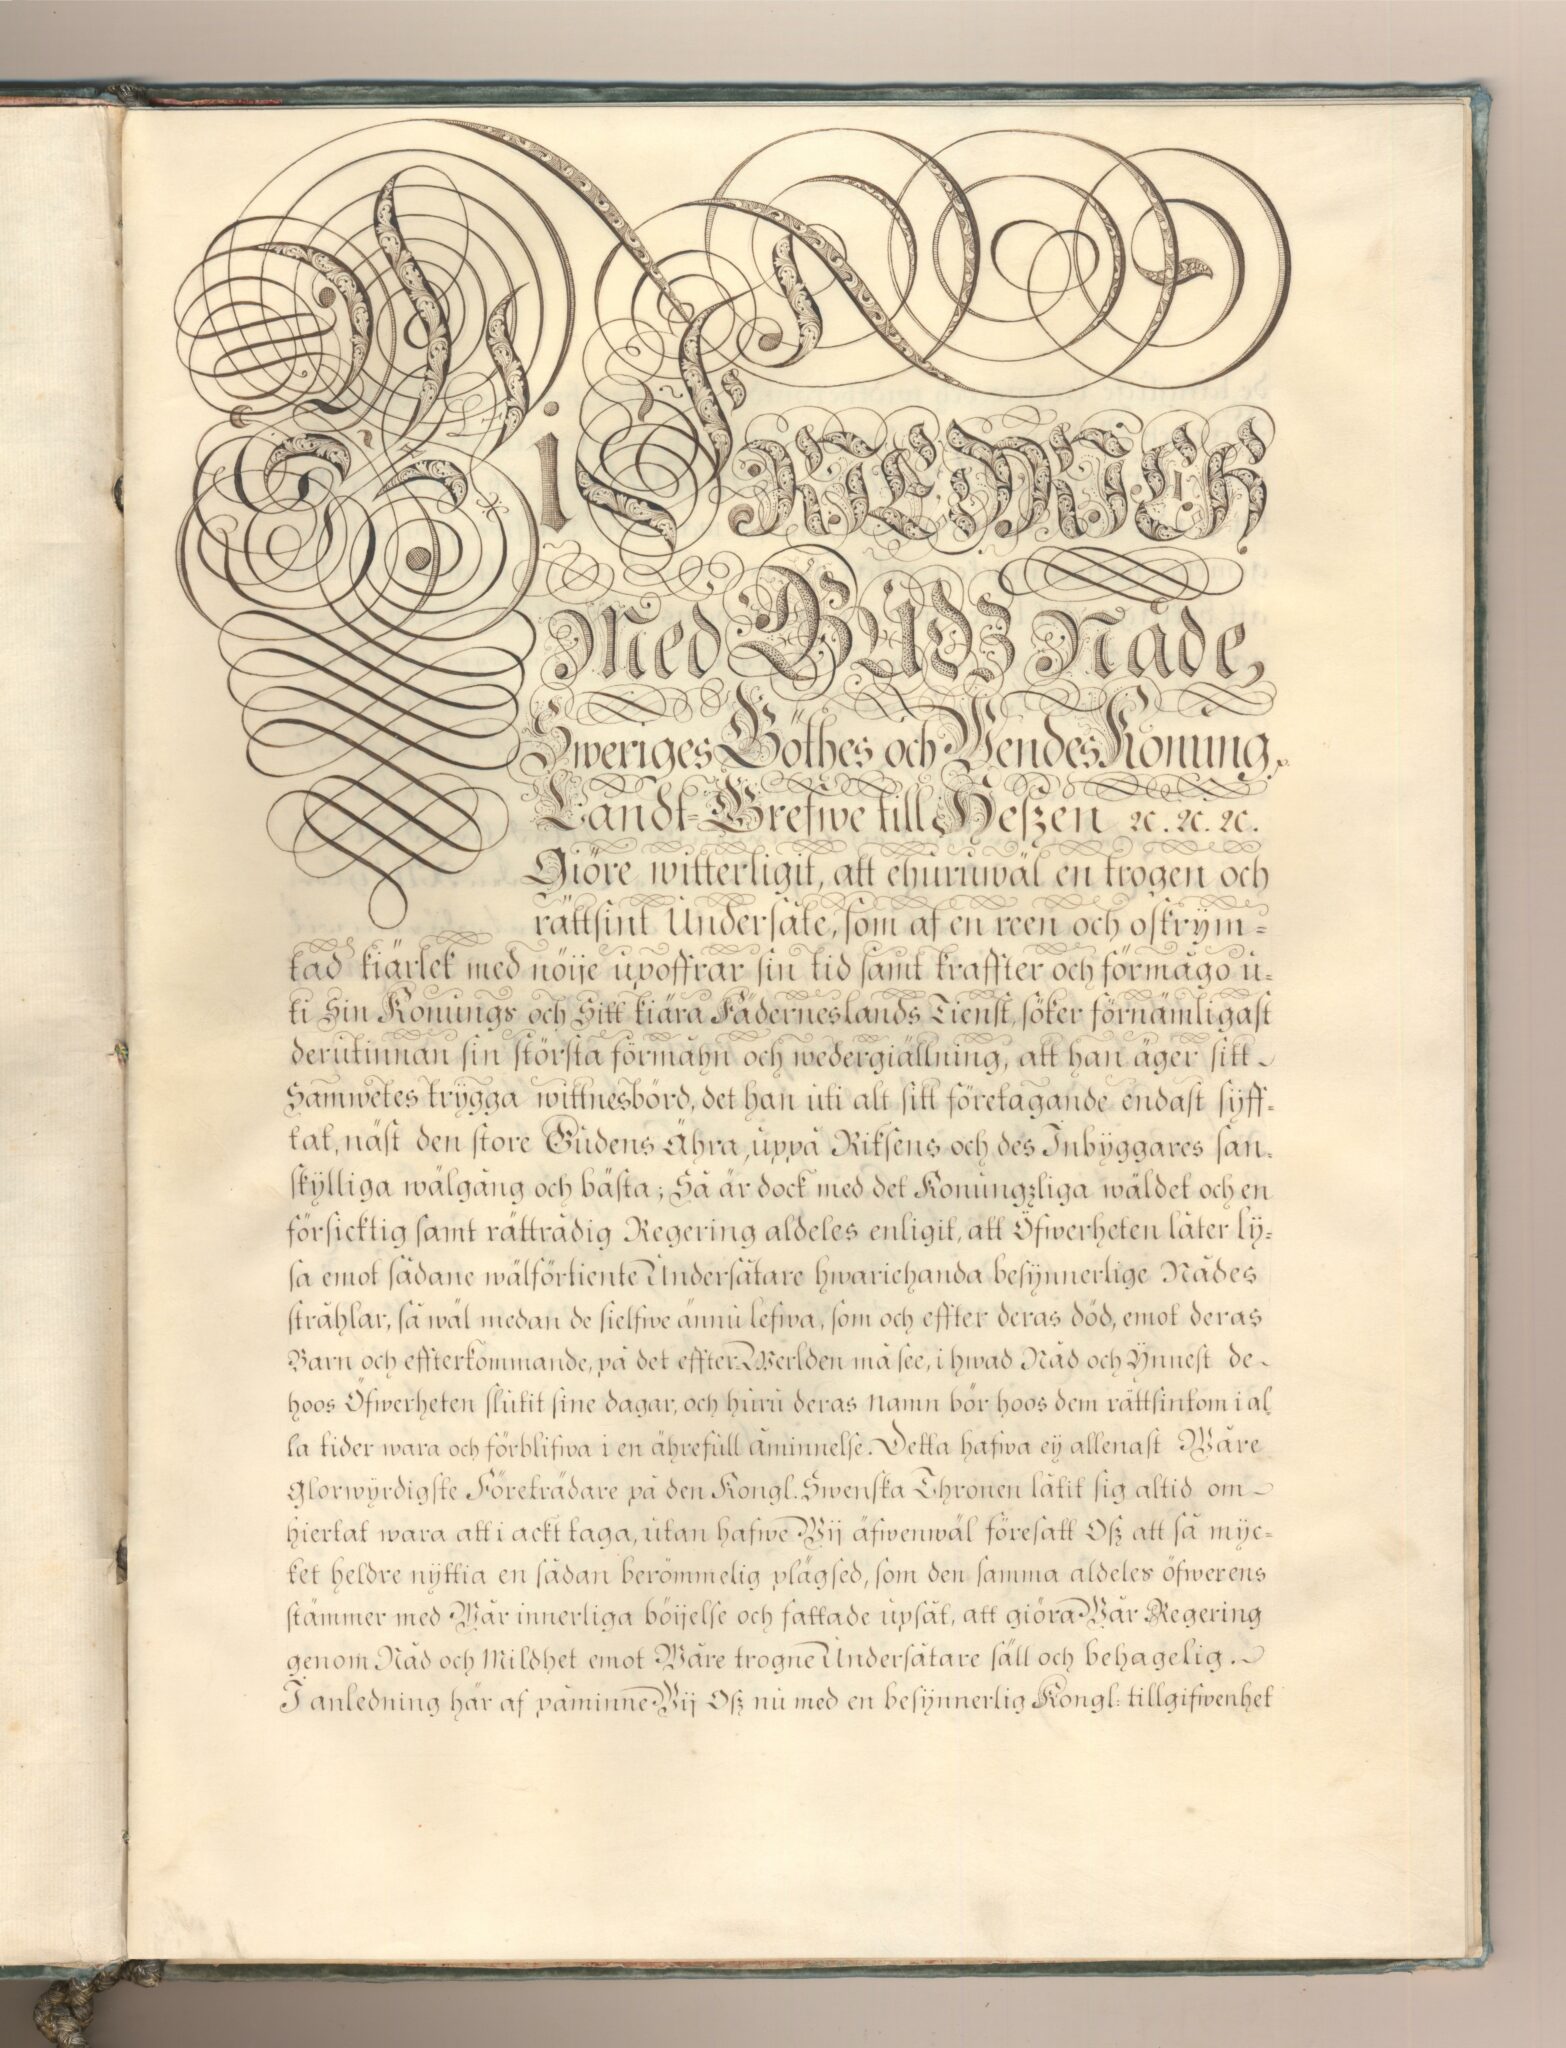 Wi FRIEDRICH
Med GUDz Nåde,
Sweriges Göthes och Wendes Konung,
Landt-Grefwe till Heszen ꝛc. ꝛc. ꝛc.
Giöre witterligit, att ehuruwäl en trogen och
rättsint Undersåte, som af en reen och oskrym-
tad kiärlek med nöije upoffrar sin tid samt kraffter och förmågo u-
ti Sin Konungs och Sitt kiära Fäderneslands Tienst, söker förnämligast
derutinnan sin största förmåhn och wedergiällning, att han äger sitt
Samwetes trygga wittnesbörd, det han uti alt sitt företagande endast syff-
tat, näst den store Gudens Ähra, uppå Riksens och des Inbyggares san-
skylliga wälgång och bästa; Så är dock med det Konungzliga wäldet och en
försicktig samt rättrådig Regering aldeles enligit, att Öfwerheten låter ly-
sa emot sådane wälförtiente Undersåtare hwariehanda besynnerlige Nådes
stråhlar, så wäl medan de sielfwe ännu lefwa, som och effter deras död, emot deras
Barn och effterkommande, på det effter Werlden må see, i hwad Nåd och Ynnest de
hoos Öfwerheten slutit sine dagar, och huru deras namn bör hoos dem rättsintom i al-
la tider wara och förblifwa i en ährefull åminnelse. Detta hafwa ey allenast Wåre
Glorwyrdigste Företrädare på den Kongl. Swenska Thronen låtit sig altid om
hiertat wara att i ackt taga, utan hafwe Wij äfwenwäl föresatt Osz att så myc-
ket heldre nyttia en sådan berömmelig plägsed, som den samma aldeles öfwerens
stämmer med Wår innerliga böijelse och fattade upsåt, att giöra Wår Regering
genom Nåd och Mildhet emot Wåre trogne Undersåtare säll och behagelig.
I anledning här af påminne Wij Osz nu med en besynnerlig Kongl: tillgifwenhet